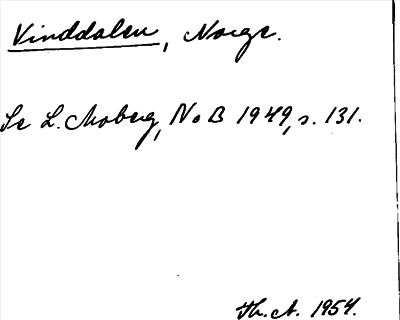 Vinddalen, Norge.
Se L. Moberg, NoB 1949, s. 131.
Th. A. 1954.